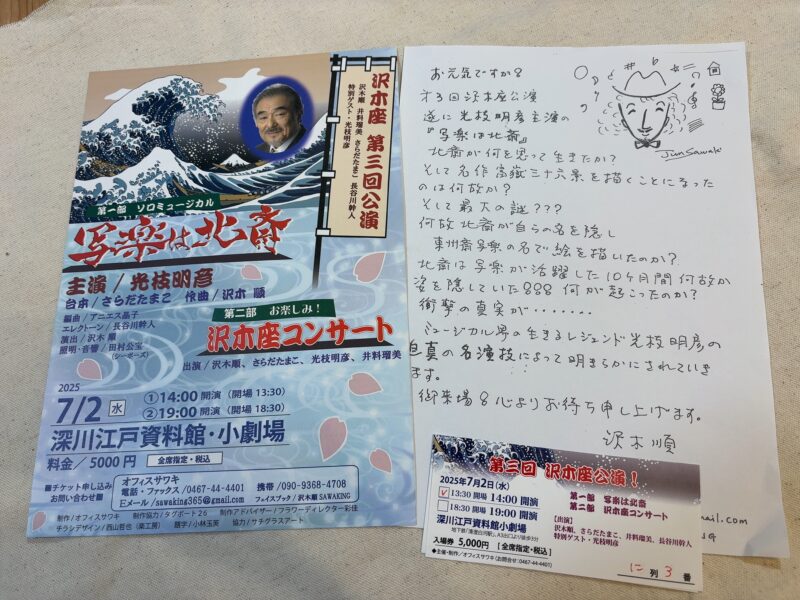 沢木座 第三回公演
沢木順 井料瑠美 さらだたまこ 長谷川幹人
特別ゲスト・光枝明彦
第一部 ソロミュージカル
写楽は北斎
主演/光枝明彦
台本/さらだたまこ 作曲/沢木 順
編曲/アニエス晶子
エレクトーン/長谷川幹人
演出/沢木 順
照明・音響/田村公宝
(シーポーズ)
第二部 お楽しみ!
沢木座コンサート
出演/沢木順、さらだたまこ、光枝明彦、井料瑠美
2025
7/2 水
①14:00 開演 (開場 13:30)
②19:00 開演 (開場 18:30)
深川江戸資料館・小劇場
料金/5000円 全席指定・税込
■チケット申し込み
お問い合わせ■
オフィスサワキ
電話・ファックス/0467-44-4401
Eメール/sawaking365@gmail.com
携帯/090-9368-4708
フェイスブック/沢木順 SAWAKING
制作/オフィスサワキ 制作協力/タグボート26 制作アドバイザー/フラワーディレクター彩佳
チラシデザイン/西山哲也(楽工房) 題字/小林玉英 協力/サチグラスアート
お元気ですか?
才3回沢木座公演
遂に光枝明彦主演の
『写楽は北斎』
北斎が何を思って生きたか?
そして名作富嶽三十六景を描くことになった
のは何故か?
そして最大の謎???
何故北斎が自らの名を隠し
東州斎写楽の名で絵を描いたのか?
北斎は写楽が活躍した10ヶ月間何故か
姿を隠していた??? 何が起こったのか?
衝撃の真実が・・・・・・・
ミュージカル界の生きるレジェンド光枝明彦の
迫真の名演技によって明きらかにされていき
ます。
御来場を心よりお待ち申し上げます。
沢木順
Jun Sawaki
mail.com
第三回 沢木座公演!
2025年7月2日(水)
13:30 開場 14:00 開演
18:30 開場 19:00 開演
深川江戸資料館小劇場
地下鉄「清澄白河駅」A3出口より徒歩3分
入場券 5,000円 [全席指定・税込]
●主催・制作/オフィスサワキ(お問合せ:0467-44-4401)
第一部 写楽は北斎
第二部 沢木座コンサート
[出演]
沢木順、さらだたまこ、井料瑠美、長谷川幹人
特別ゲスト・光枝明彦
に 列 3 番